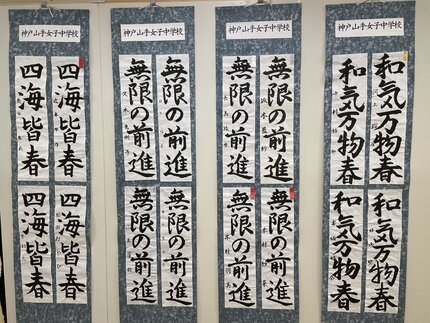 神戸山手女子中学校
四海皆春
四海皆春
四海皆春
四海皆春
神戸山手女子中学校
無限の前進
無限の前進
無限の前進
無限の前進
神戸山手女子中学校
無限の前進
無限の前進
無限の前進
無限の前進
神戸山手女子中学校
和気万物春
和気万物春
和気万物春
和気万物春